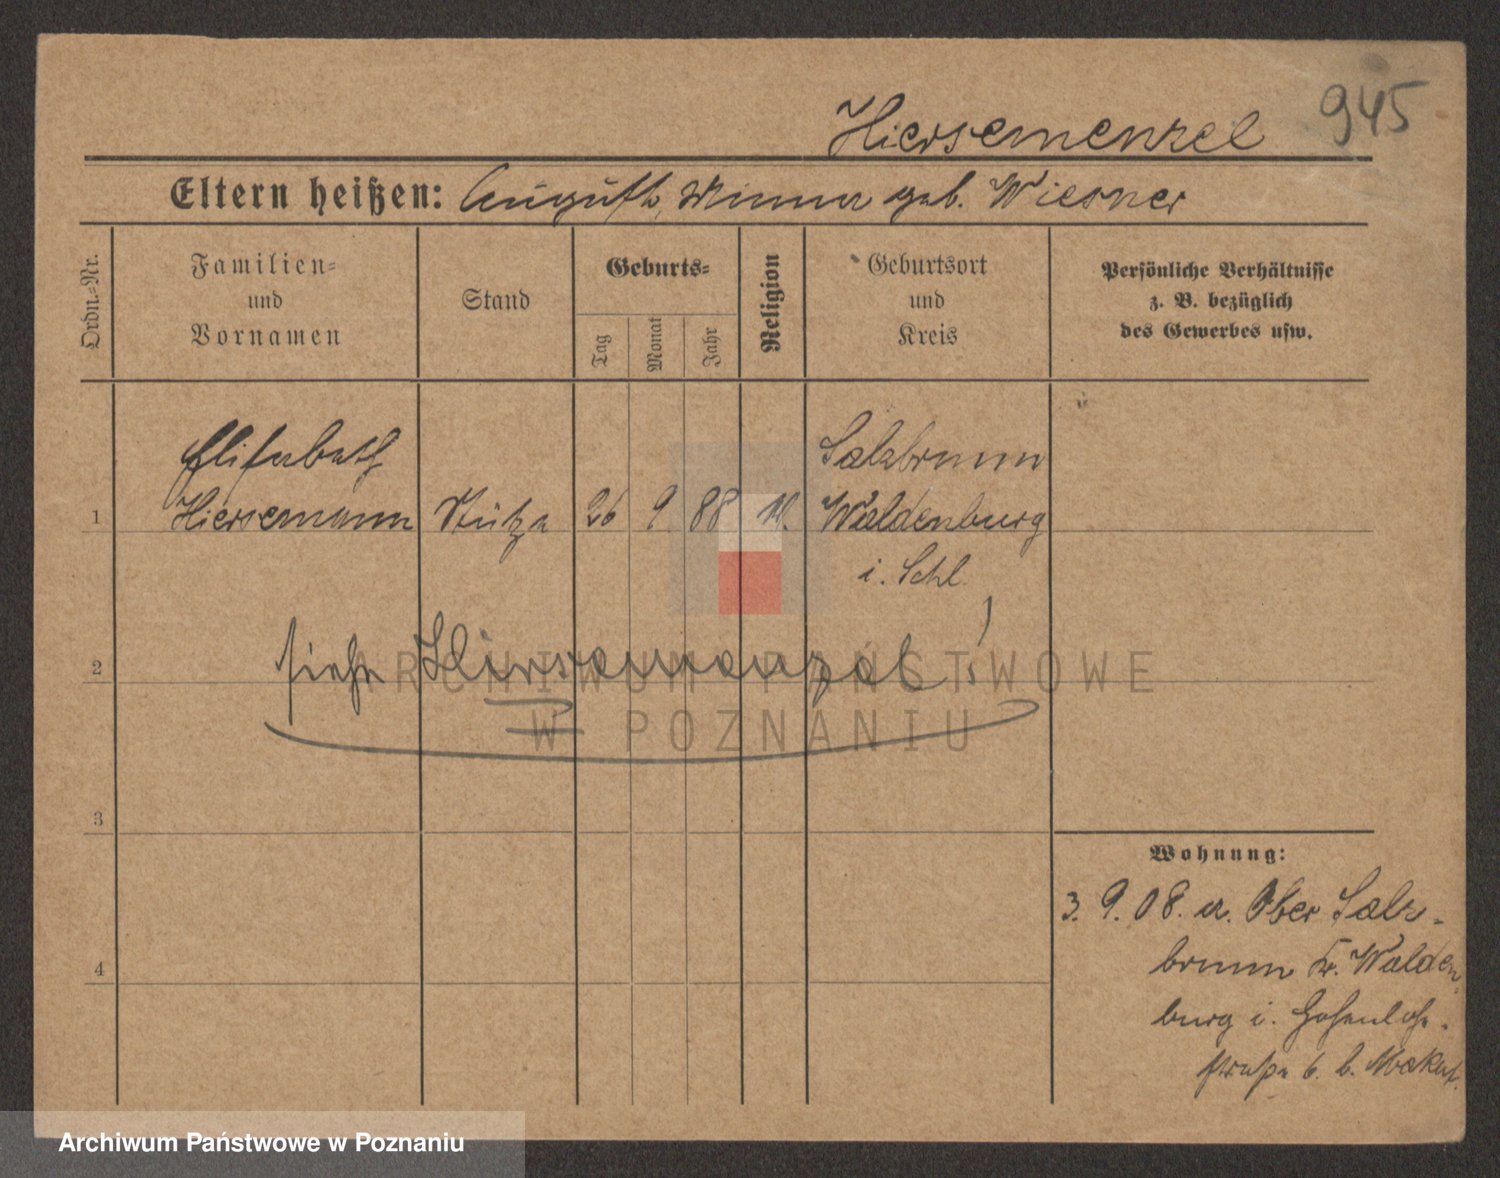 945
Hiersemenzel
Eltern heißen: August, Minna geb. Wiesner
Ordn.-Nr.
Familien-
und
Vornamen
Stand
Geburts-
Tag
Monat
Jahr
Religion
Geburtsort
und
Kreis
Persönliche Verhältnisse
z. B. bezüglich
des Gewerbes usw.
Elisabeth
Salzbrunn
1 Hiersemann Stütze 26 9 88 Waldenburg
i. Schl.
2 siehe Hiersemenzel!
3
Wohnung:
3. 9. 08. a. Ober Salz-
4 brunn Kr. Walden-
burg i. Hohenlohe-
straße 6. b.
ARCHIWUM PAŃSTWOWE
W POZNANIU
Archiwum Państwowe w Poznaniu